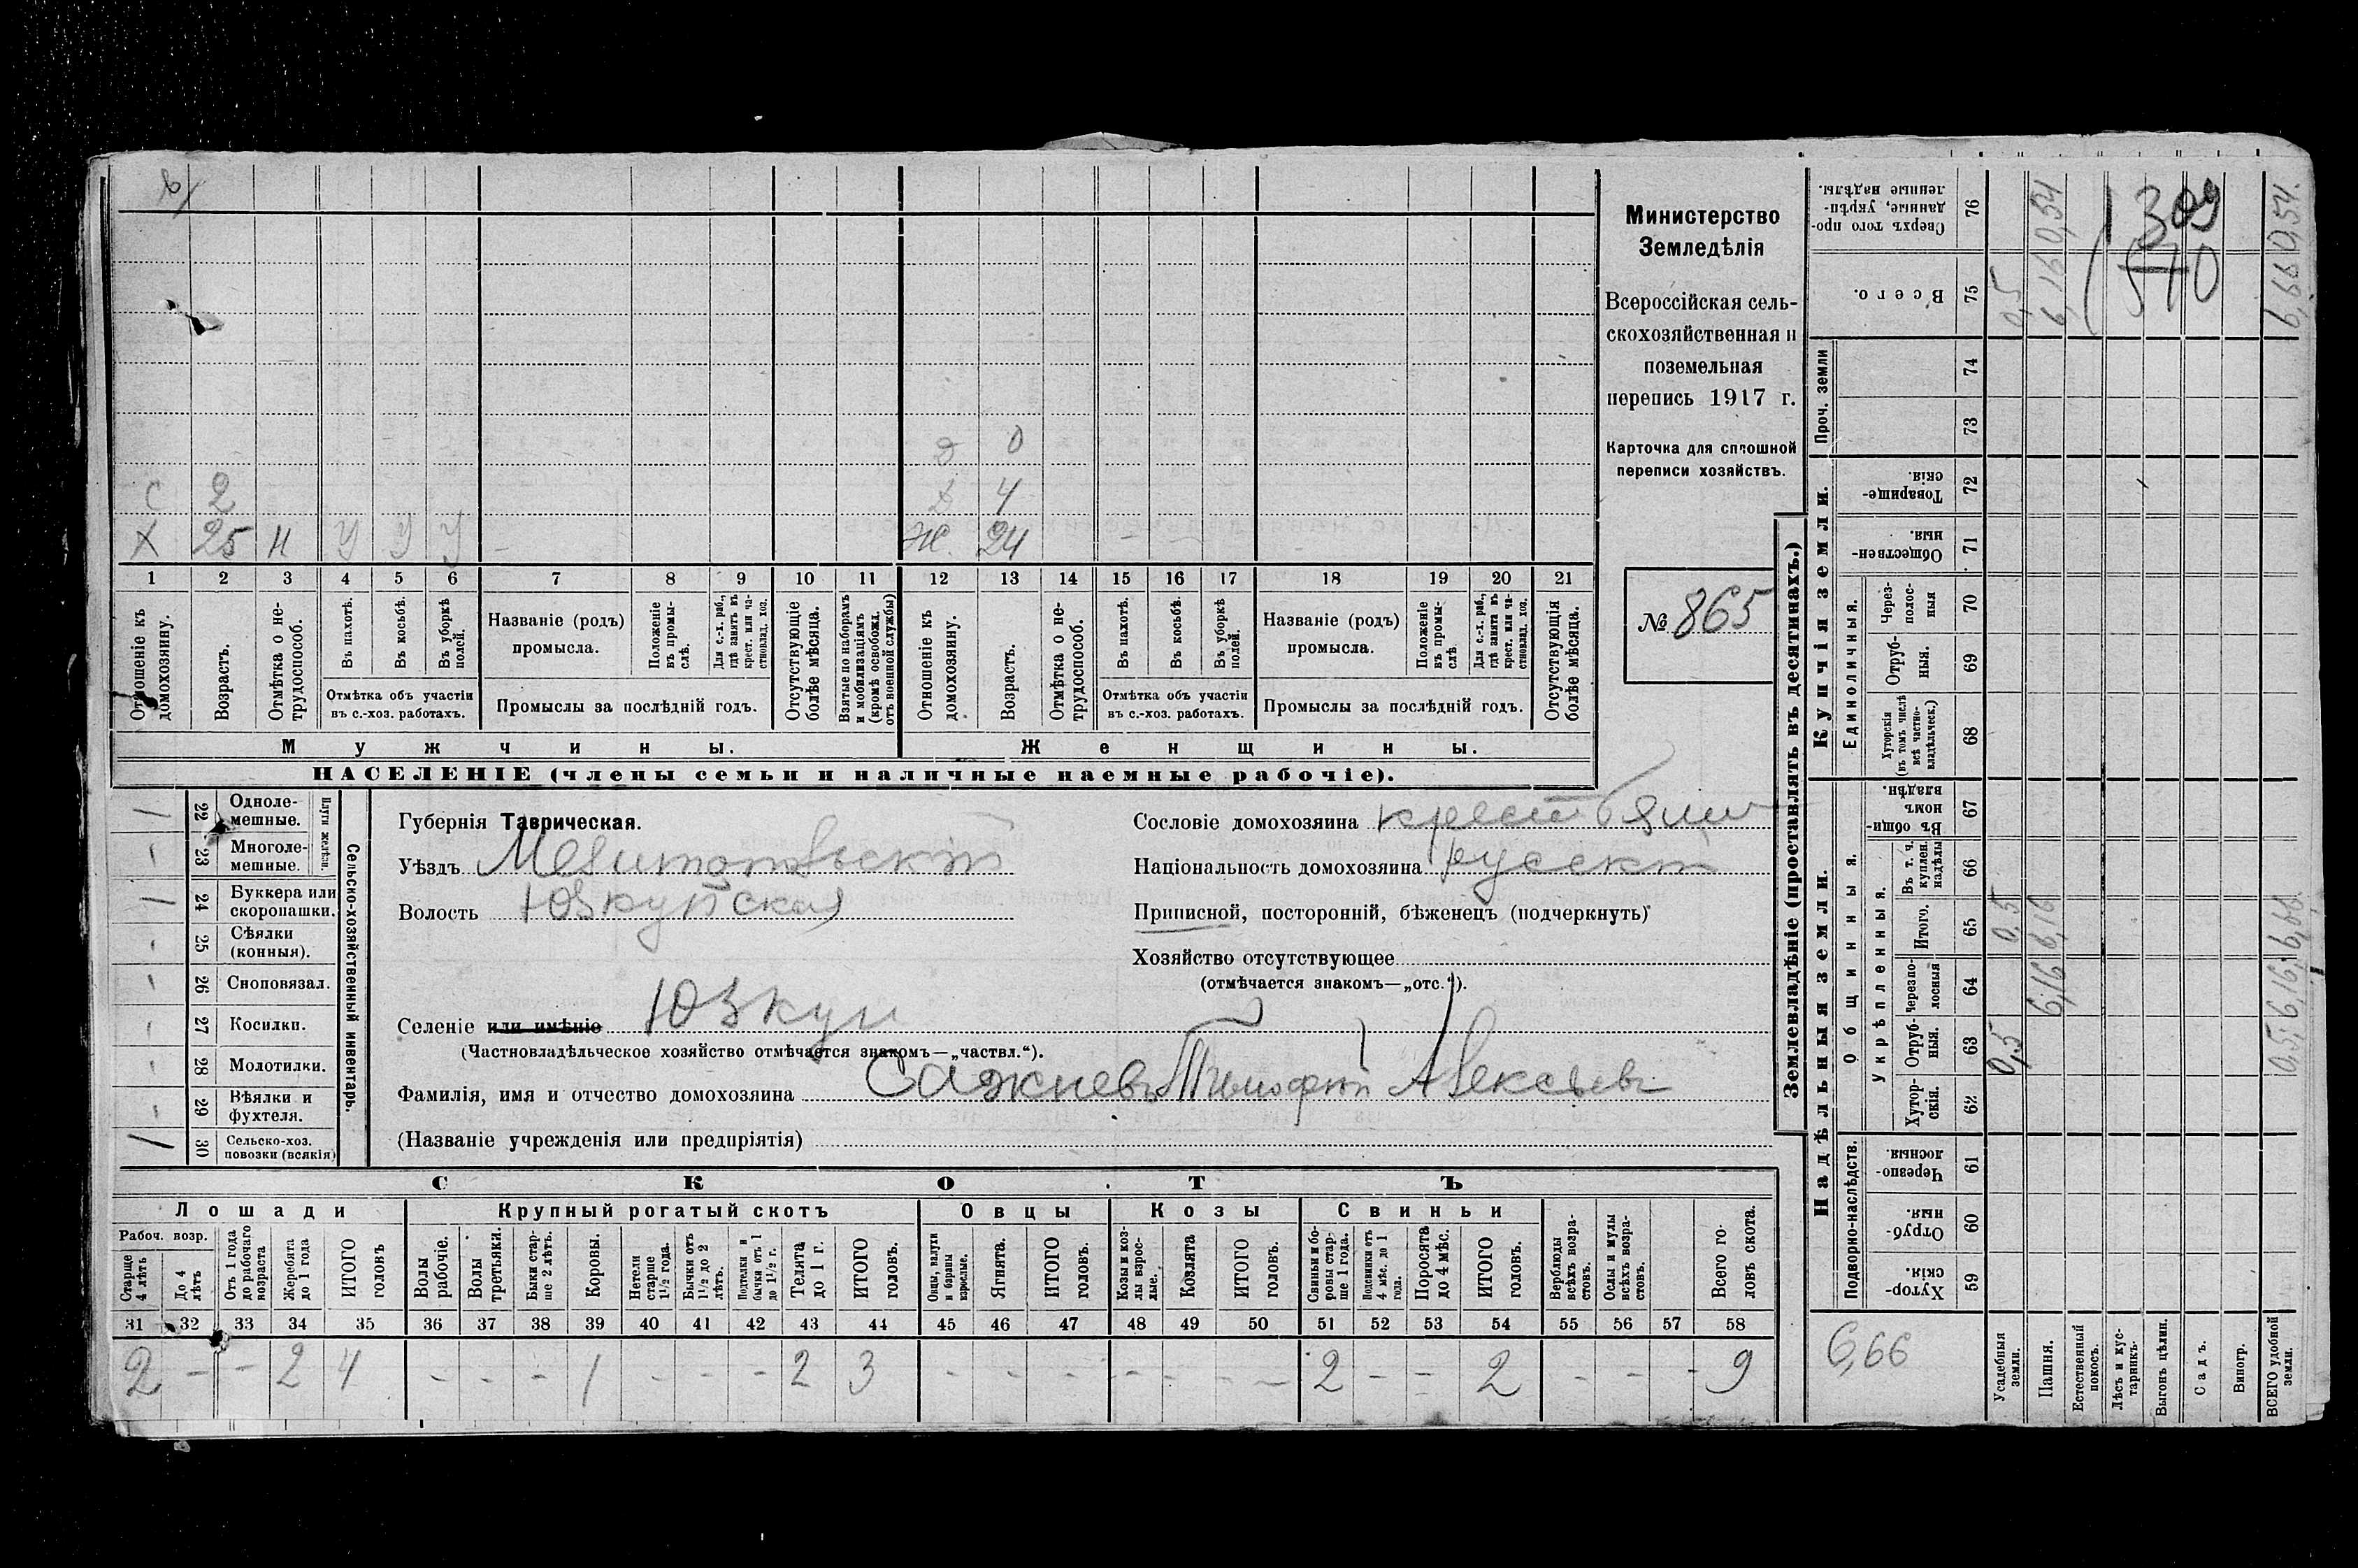 Министерство
Земледѣлія
Всероссійская сель-
скохозяйственная и
поземельная
перепись 1917 г.
Карточка для сплошной
переписи хозяйствъ.
№ 865
д 0
с 2 д 4
х 25 н у у у – ж. 24 – –
1 2 3 4 5 6 7 8 9 10 11 12 13 14 15 16 17 18 19 20 21
Отношеніе къ домохозяину.
Возрастъ.
Отмѣтка о не-трудоспособ.
Въ пахотѣ.
Въ косьбѣ.
Въ уборкѣ полей.
Отмѣтка объ участіи въ с.-хоз. работахъ.
Названіе (родъ) промысла.
Положеніе въ промы-слѣ.
Для с.-х. раб., гдѣ занятъ въ крест. или ча-стновлад. хоз.
Промыслы за послѣдній годъ.
Отсутствующіе болѣе мѣсяца.
Взятые по наборамъ и мобилизаціямъ (кромѣ освобожд. отъ военной службы)
Отношеніе къ домохозяину.
Возрастъ.
Отмѣтка о не-трудоспособ.
Въ пахотѣ.
Въ косьбѣ.
Въ уборкѣ полей.
Отмѣтка объ участіи въ с.-хоз. работахъ.
Названіе (родъ) промысла.
Положеніе въ промы-слѣ.
Для с.-х. раб., гдѣ занята въ крест. или ча-стновлад. хоз.
Промыслы за послѣдній годъ.
Отсутствующія болѣе мѣсяца.
Мужчины. Женщины.
НАСЕЛЕНІЕ (члены семьи и наличные наемные рабочіе).
Сельско-хозяйственный инвентарь.
Плуги желѣзн.
22 Одноле-мешные.
23 Многоле-мешные.
24 Буккера или скоропашки.
25 Сѣялки (конныя).
26 Сноповязал.
27 Косилки.
28 Молотилки.
29 Вѣялки и фухтеля.
30 Сельско-хоз. повозки (всякія)
Губернія Таврическая.
Уѣздъ Мелитопольскій
Волость Юзкуйская
Селеніе или имѣніе Юзкуи
(Частновладѣльческое хозяйство отмѣчается знакомъ—„частвл.“).
Фамилія, имя и отчество домохозяина Сажневъ Тимофей Алексѣевъ
(Названіе учрежденія или предпріятія)
Сословіе домохозяина
Національность домохозяина русскій
Приписной, посторонній, бѣженецъ (подчеркнуть)
Хозяйство отсутствующее
(отмѣчается знакомъ—„отс.“).
СКОТЪ
Лошади Крупный рогатый скотъ Овцы Козы Свиньи
Рабоч. возр.
Старше 4 лѣтъ
До 4 лѣтъ
Отъ 1 года до рабочаго возраста
Жеребята до 1 года
ИТОГО головъ
Волы рабочіе.
Волы третьяки.
Быки стар-ше 2 лѣтъ.
Коровы.
Нетели старше 1½ года.
Бычки отъ 1½ до 2 лѣтъ.
Подтелки и бычки отъ 1 до 1½ г.
Телята до 1 г.
ИТОГО головъ.
Овцы, валухи и бараны взрослые.
Ягнята.
ИТОГО головъ.
Козы и коз-лы взрос-лые.
Козлята
ИТОГО головъ.
Свиньи и бо-ровы стар-ше 1 года.
Подсвинки отъ 4 мѣс. до 1 года.
Поросята до 4 мѣс.
ИТОГО головъ.
Верблюды всѣхъ возра-стовъ.
Ослы и мулы всѣхъ возра-стовъ.
Всего го-ловъ скота.
31 32 33 34 35 36 37 38 39 40 41 42 43 44 45 46 47 48 49 50 51 52 53 54 55 56 57 58
2 – – 2 4 – – – 1 – – – 2 3 – – – – – – 2 – – 2 – – – 9
Землевладѣніе (проставлять въ десятинахъ.)
Купчія земли.
Надѣльныя земли.
Сверхъ того про-данные, укрѣп-ленные надѣлы. 76
Всего. 75
Проч. земли 74 73
Товарище-скія 72
Обществен-ныя. 71
Единоличныя.
Через-полос-ныя 70
Отруб-ныя. 69
Хуторскія (въ томъ числѣ всѣ частно-владѣльческ.) 68
Общинныя.
Въ общин-номъ владѣн. 67
Укрѣпленныя.
Въ т. ч. куплен. надѣлы 66
Итого. 65
Черезпо-лосныя 64
Отруб-ныя. 63
Хутор-скія. 62
Подворно-наслѣдств.
Черезпо-лосныя. 61
Отруб-ныя. 60
Хутор-скія. 59
6,66
Усадебныя земли.
Пашня.
Естественный покосъ.
Лѣсъ и кус-тарникъ.
Выгонъ цѣлин.
Садъ.
Виногр.
ВСЕГО удобной земли.
0,5 0,5 0,5
6,16 6,16 6,16 0,54
0,5; 6,16; 6,66. 6,66 0,54.
1309
510